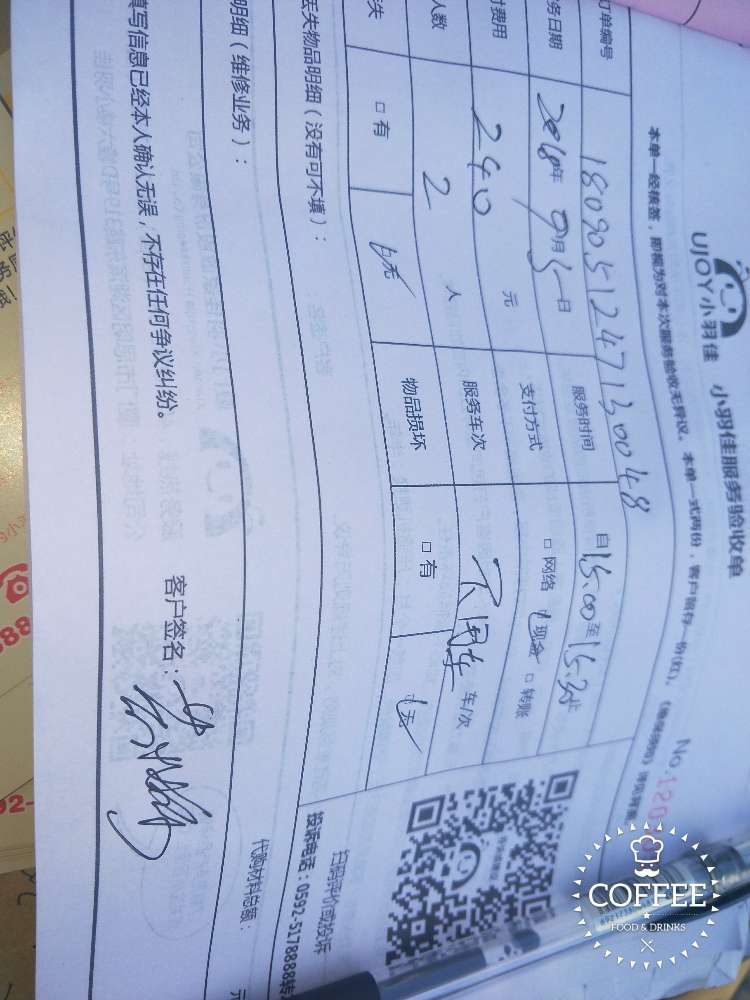 UJOY小羽佳 小羽佳服务验收单
本单一经核签，即视为对本次服务验收无异议。本单一式两份，客户留存一份(红)。
No.120
订单编号 1809051247130048
务日期 2018年9月5日 服务时间 自15:00至15:30止
付费用 240元 支付方式 □网络 现金 □转账
人数 2人 服务车次 不用车 车/次
失 □有 无 物品损坏 □有 无
丢失物品明细（没有可不填）：
扫码评价或投诉
投诉电话：0592-5178888转
明细（维修业务）：
代购材料总额： 元
真写信息已经本人确认无误，不存在任何争议纠纷。 客户签名：
COFFEE
FOOD & DRINKS